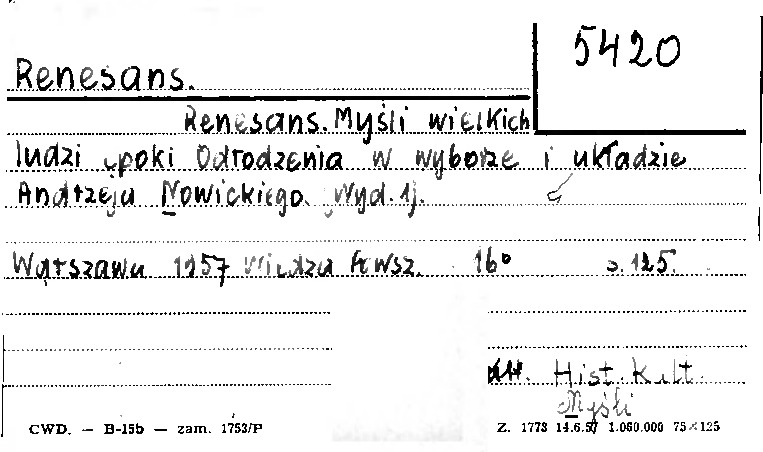 5420
Renesans.
Renesans. Myśli wielkich
ludzi epoki Odrodzenia w wyborze i układzie
Andrzeja Nowickiego. Wyd. 1.
Warszawa 1957 Wiedza Powsz. 16° s. 125.
Hist. Kult.
Myśli
CWD. — B-15b — zam. 1753/P
Z. 1773 14.6.57 1.060.000 75×125